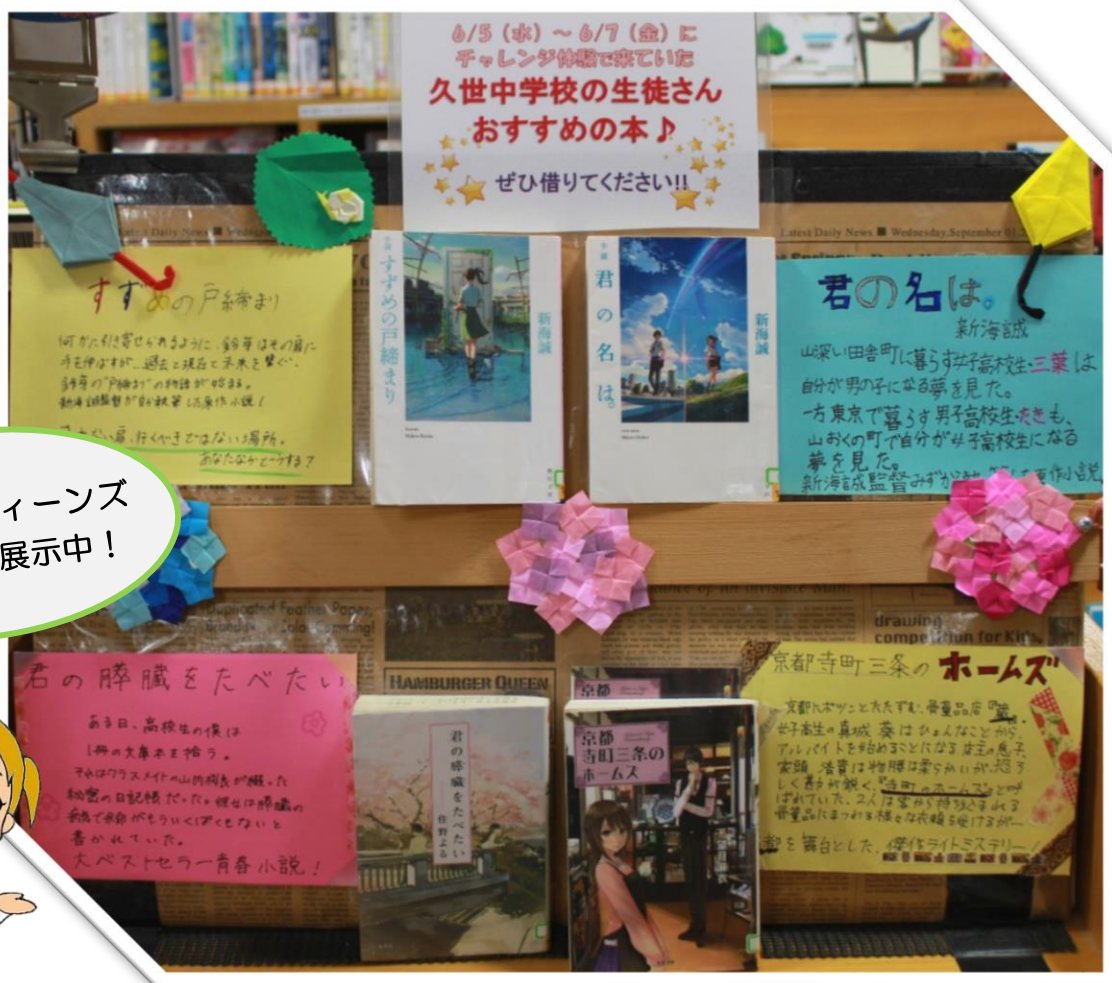 6/5（水）～6/7（金）に
チャレンジ体験で来ていた
久世中学校の生徒さん
おすすめの本♪
ぜひ借りてください!!
Latest Daily News ■ Wednesday, September 01
すずめの戸締まり
何かに引き寄せられるように、鈴芽はその扉に
手を伸ばすが…過去と現在と未来を繋ぐ、
鈴芽の"戸締まり"の物語が始まる。
新海誠監督が自ら執筆した原作小説！
扉、行くべきではない場所。
あなたならどうする？
小説
すずめの戸締まり
新海誠
小説
君の名は。
新海誠
君の名は。
新海誠
山深い田舎町に暮らす女子高校生・三葉は
自分が男の子になる夢を見た。
一方東京で暮らす男子高校生・たきも、
山おくの町で自分が女子高校生になる
夢を見た。
新海誠監督みずから 原作小説。
ィーンズ
展示中！
Duplicated Feather Paper,
drawing
competition for Kids
HAMBURGER QUEEN
君の膵臓をたべたい
ある日、高校生の僕は
1冊の文庫本を拾う。
それはクラスメイトの山内桜良が綴った
秘密の日記帳だった。彼女は膵臓の
病気で余命がもういくばくもないと
書かれていた。
大ベストセラー青春小説！
君の膵臓をたべたい
住野よる
京都
京都
寺町三条の
ホームズ
望月麻衣
京都寺町三条のホームズ
京都にポツンとたたずむ、骨董品店『蔵』。
女子高生の真城 葵はひょんなことから、
アルバイトを始めることになる。店主の息子、
家頭 清貴は物腰は柔らかいが、恐ろ
しく勘が鋭く、『寺町のホームズ』と呼
ばれていた。2人は客から持ち込まれる
骨董品にまつわる様々な依頼を受けるが…
都を舞台とした、傑作ライトミステリー！